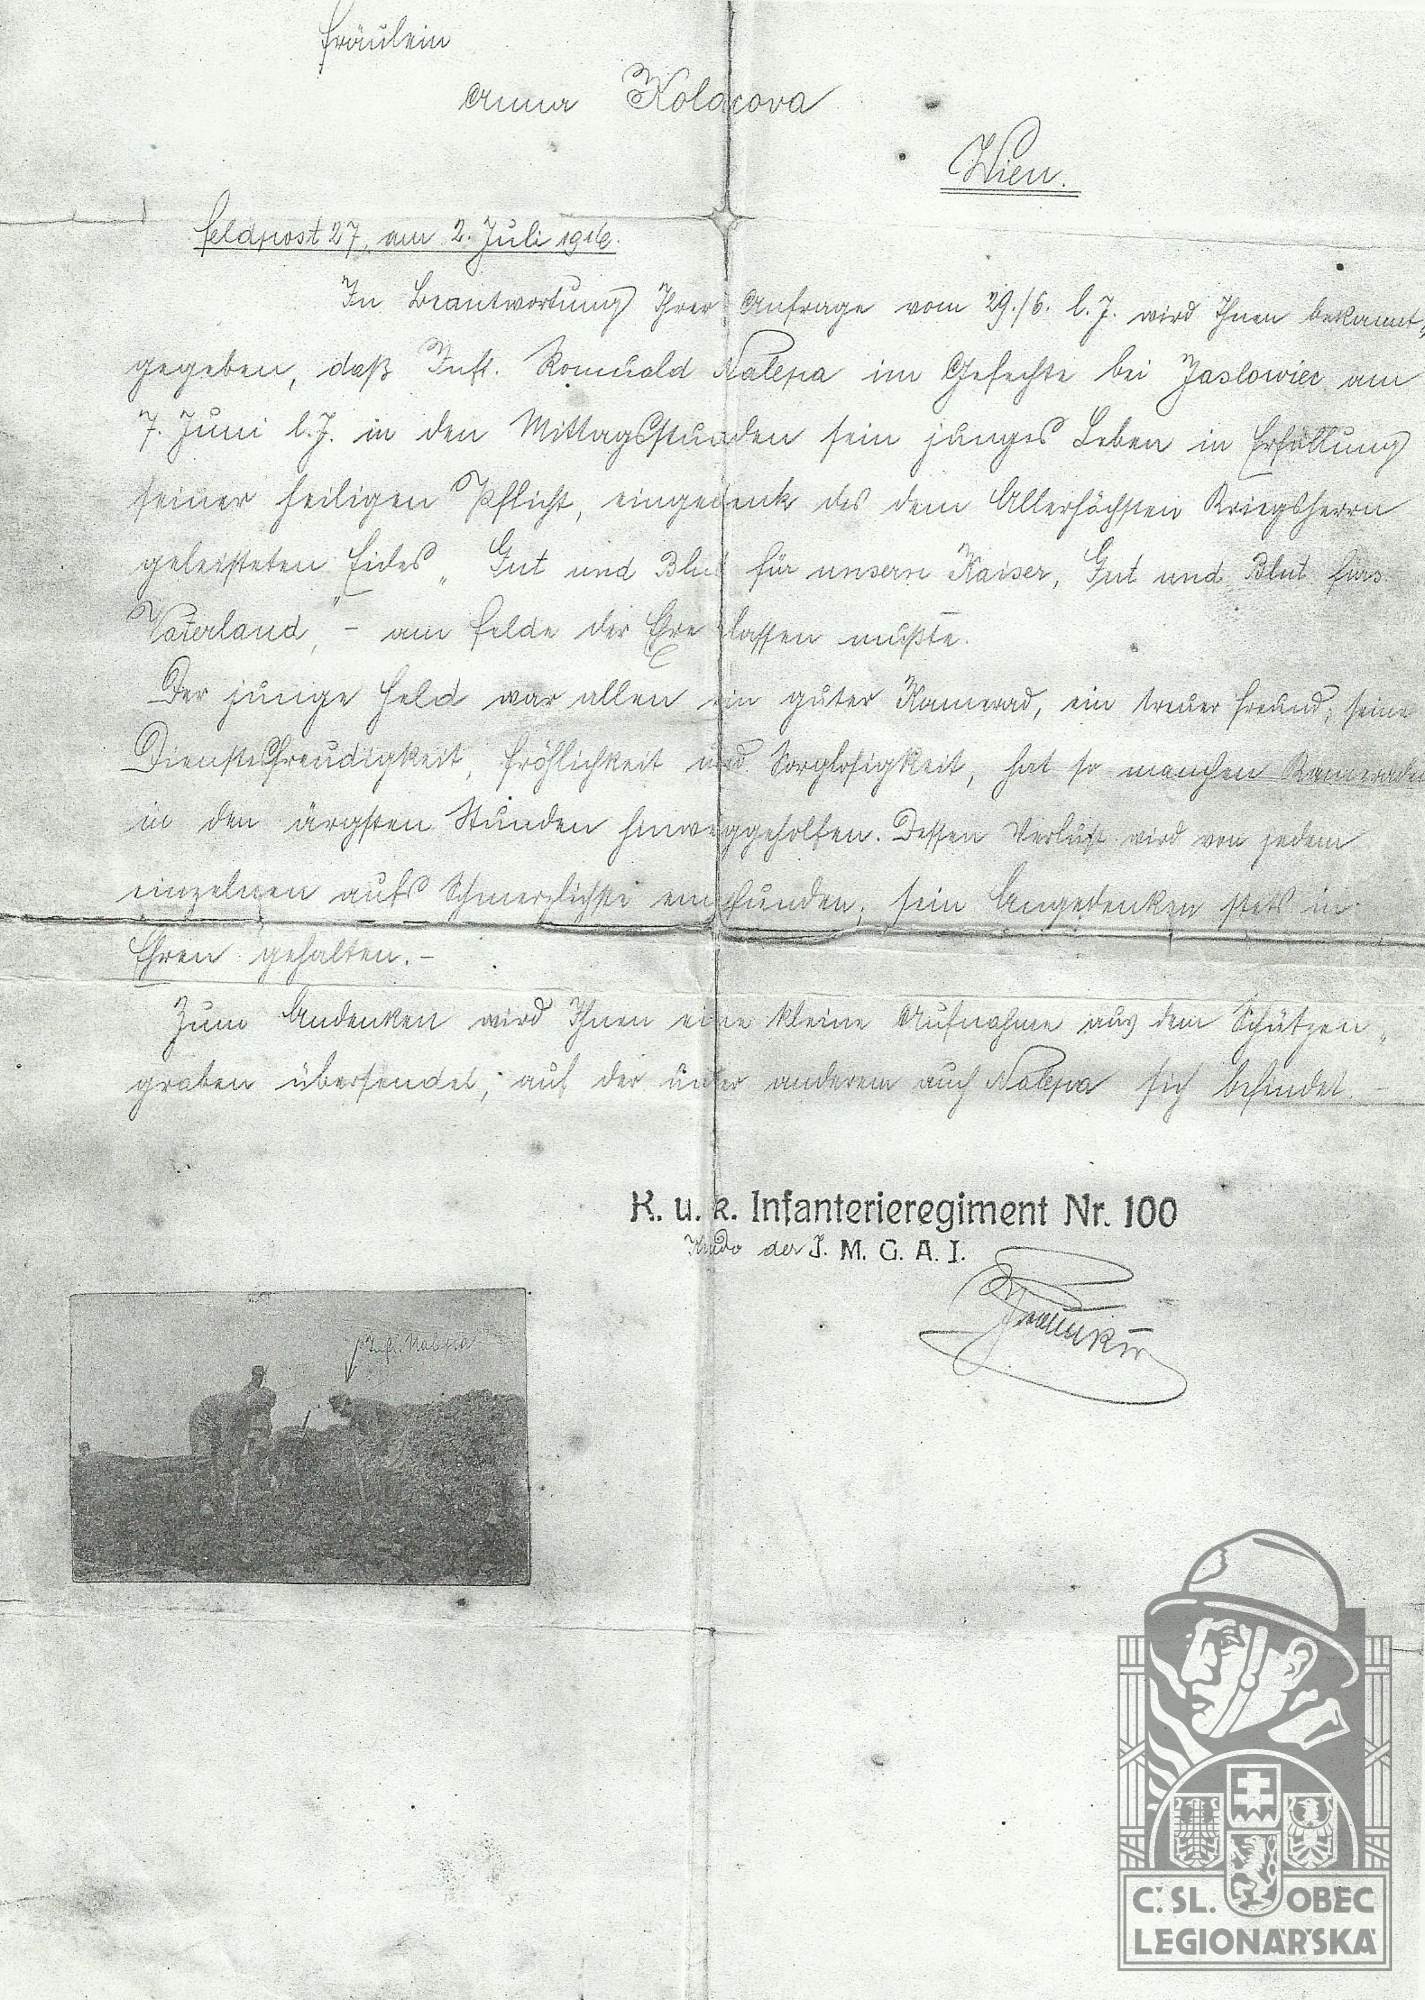 Fräulein
Anna Kolacova
Wien.
Feldpost 27, am 2. Juli 1916.
In Beantwortung Ihrer Anfrage vom 29./6. l. J. wird Ihnen bekannt-
gegeben, daß Inft. Romuald Nalepa im Gefechte bei Jaslowiec am
7. Juni l. J. in den Mittagsstunden sein junges Leben in Erfüllung
seiner heiligen Pflicht, eingedenk des dem Allerhöchsten Kriegsherrn
geleisteten Eides „Gut und Blut für unsern Kaiser, Gut und Blut fürs
Vaterland," - am Felde der Ehre lassen mußte.
Der junge Held war allen ein guter Kamerad, ein treuer Freund, seine
Dienstesfreudigkeit, Fröhlichkeit und Sorglosigkeit, hat so manchen Kameraden
in den ärgsten Stunden hinweggeholfen. Dessen Verlust wird von jedem
einzelnen aufs Schmerzlichste empfunden, sein Angedenken stets in
Ehren gehalten. -
Zum Andenken wird Ihnen eine kleine Aufnahme aus dem Schützen-
graben übersendet, auf der unter anderem auch Nalepa sich befindet. -
K. u. k. Infanterieregiment Nr. 100
Kmdo der J. M. G. A. I.
Inft. Nalepa
Č. SL. OBEC
LEGIONÁŘSKÁ